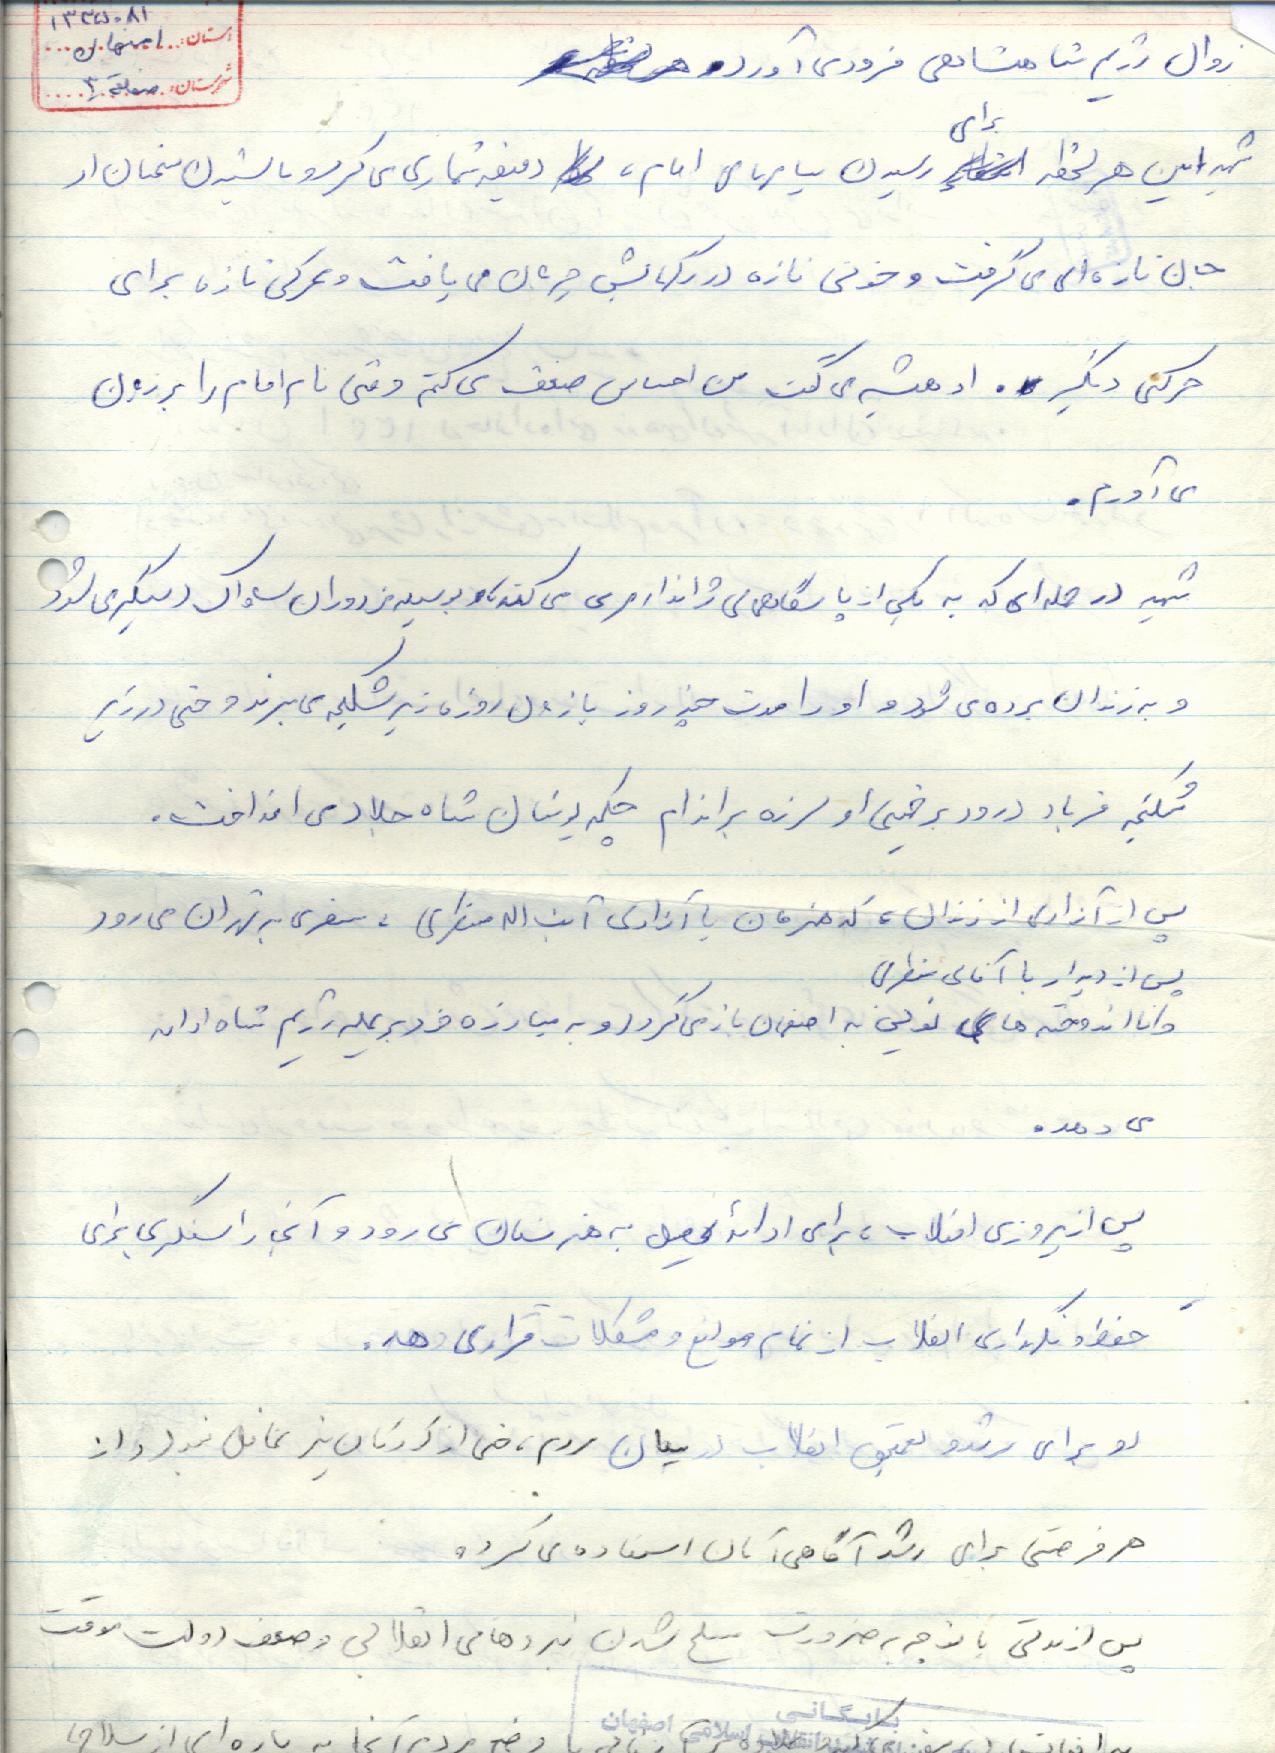 ۱۳۳۵۰۸۱
استان: اصفهان
شهرستان: منطقه ۳
زوال رژیم شاهنشاهی فرودمی‌آورد.
برای
شهید امین هر لحظه رسیدن پیامهای امام، دقیقه شماری می کرد و با شنیدن سخنان او
جان تازه‌ای می گرفت و خونی تازه در رگهایش جریان می یافت و تحرکی تازه برای
حرکتی دیگر. او همیشه می گفت من احساس ضعف می کنم وقتی نام امام را بر زبان
می آورم.
شهید در حمله‌ای که به یکی از پاسگاههای ژاندارمری می کند بوسیله مزدوران ساواک دستگیر می شود
و به زندان برده می شود و او را مدت چند روز با زبان روزه زیر شکنجه می برند و حتی در زیر
شکنجه فریاد درود بر خمینی او لرزه بر اندام چکمه پوشان شاه جلاد می انداخت.
پس از آزادی از زندان، که همزمان با آزادی آیت اله منتظری، سفری به تهران می رود
پس از دیدار با آقای منتظری
و با اندوخته های نوین به اصفهان باز می گردد و به مبارزه خود بر علیه رژیم شاه ادامه
می دهد.
پس از پیروزی انقلاب، برای ادامهٔ تحصیل به هنرستان می رود و آنجا را سنگری برای
حفظ و نگهداری انقلاب از تمام موانع و مشکلات قرار می دهد.
او برای رشد و تعمیق انقلاب در میان مردم، حتی از کودکان نیز غافل نبود و از
هر فرصتی برای رشد آگاهی آنان استفاده می کرد.
پس از مدتی با توجه به ضرورت مسلح شدن نیروهای انقلابی و ضعف دولت موقت
بایگانی
انقلاب اسلامی اصفهان
به با وضع مردم آنجا به پاره ای از سلاحها